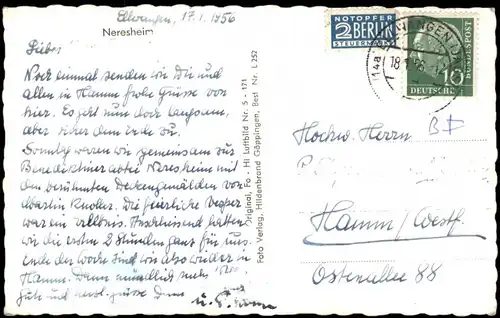 Ellwangen, 17.1.1956
Neresheim
Lieber
Noch einmal senden wir Dir und
allen in Hamm frohe Grüsse von
hier. Es geht nun doch langsam,
aber sicher dem Ende zu.
Sonntag waren wir gemeinsam zur
Benediktiner abtei Neresheim mit
den berühmten Deckengemälden von
Martin Knoller. Die feierliche Vesper
war ein Erlebnis. Anschliessend hatten
wir die ersten 2 Stunden ganz für uns.
Ende der Woche sind wir also wieder in
Hamm. Dann mündlich mehr
Gute und herzl. Grüsse Dein
u.
Original, Fo - Hi Luftbild Nr. S - 171
Foto Verlag, Hildenbrand Göppingen, Best Nr. L 252
NOTOPFER
2 BERLIN
STEUERMARKE
14a
18.1.56
10
DEUTSCHE
BUNDESPOST
Hochw. Herrn
Hamm/Westf.
Ostenallee 88